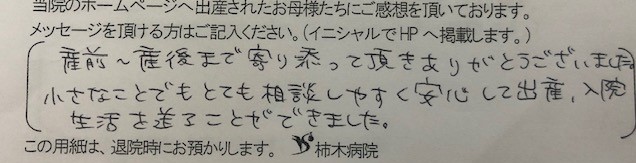 当院のホームページへ出産されたお母様たちにご感想を頂いております。
メッセージを頂ける方はご記入ください。(イニシャルでHPへ掲載します。)
産前~産後まで寄り添って頂きありがとうございました。
小さなことでもとても相談しやすく安心して出産、入院
生活を送ることができました。
この用紙は、退院時にお預かりします。 柿木病院